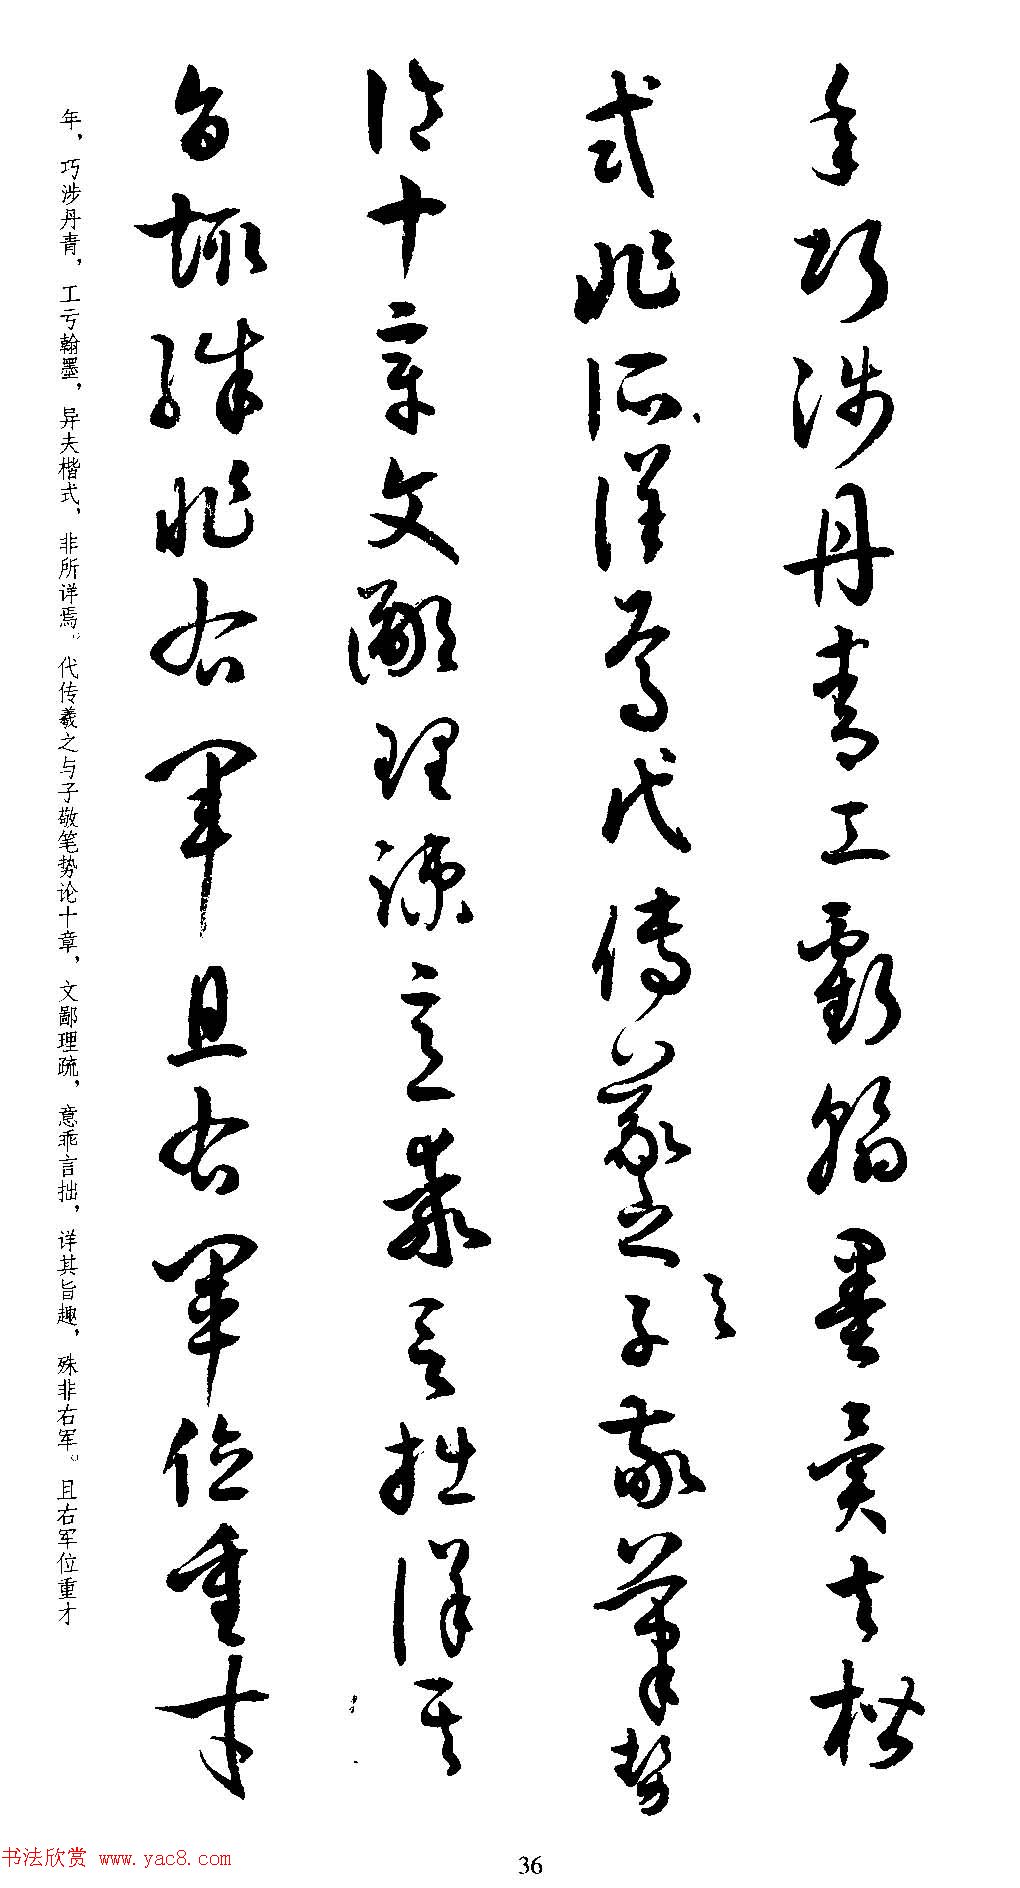 年巧涉丹青工虧翰墨異夫楷
式非所詳焉代傳羲之与子敬筆勢
論十章文鄙理疏意乖言拙詳其
旨趣殊非右軍且右軍位重才
年，巧涉丹青，工亏翰墨，异夫楷式，非所详焉。代传羲之与子敬笔势论十章，文鄙理疏，意乖言拙，详其旨趣，殊非右军。且右军位重才
书法欣赏 www.yac8.com
36